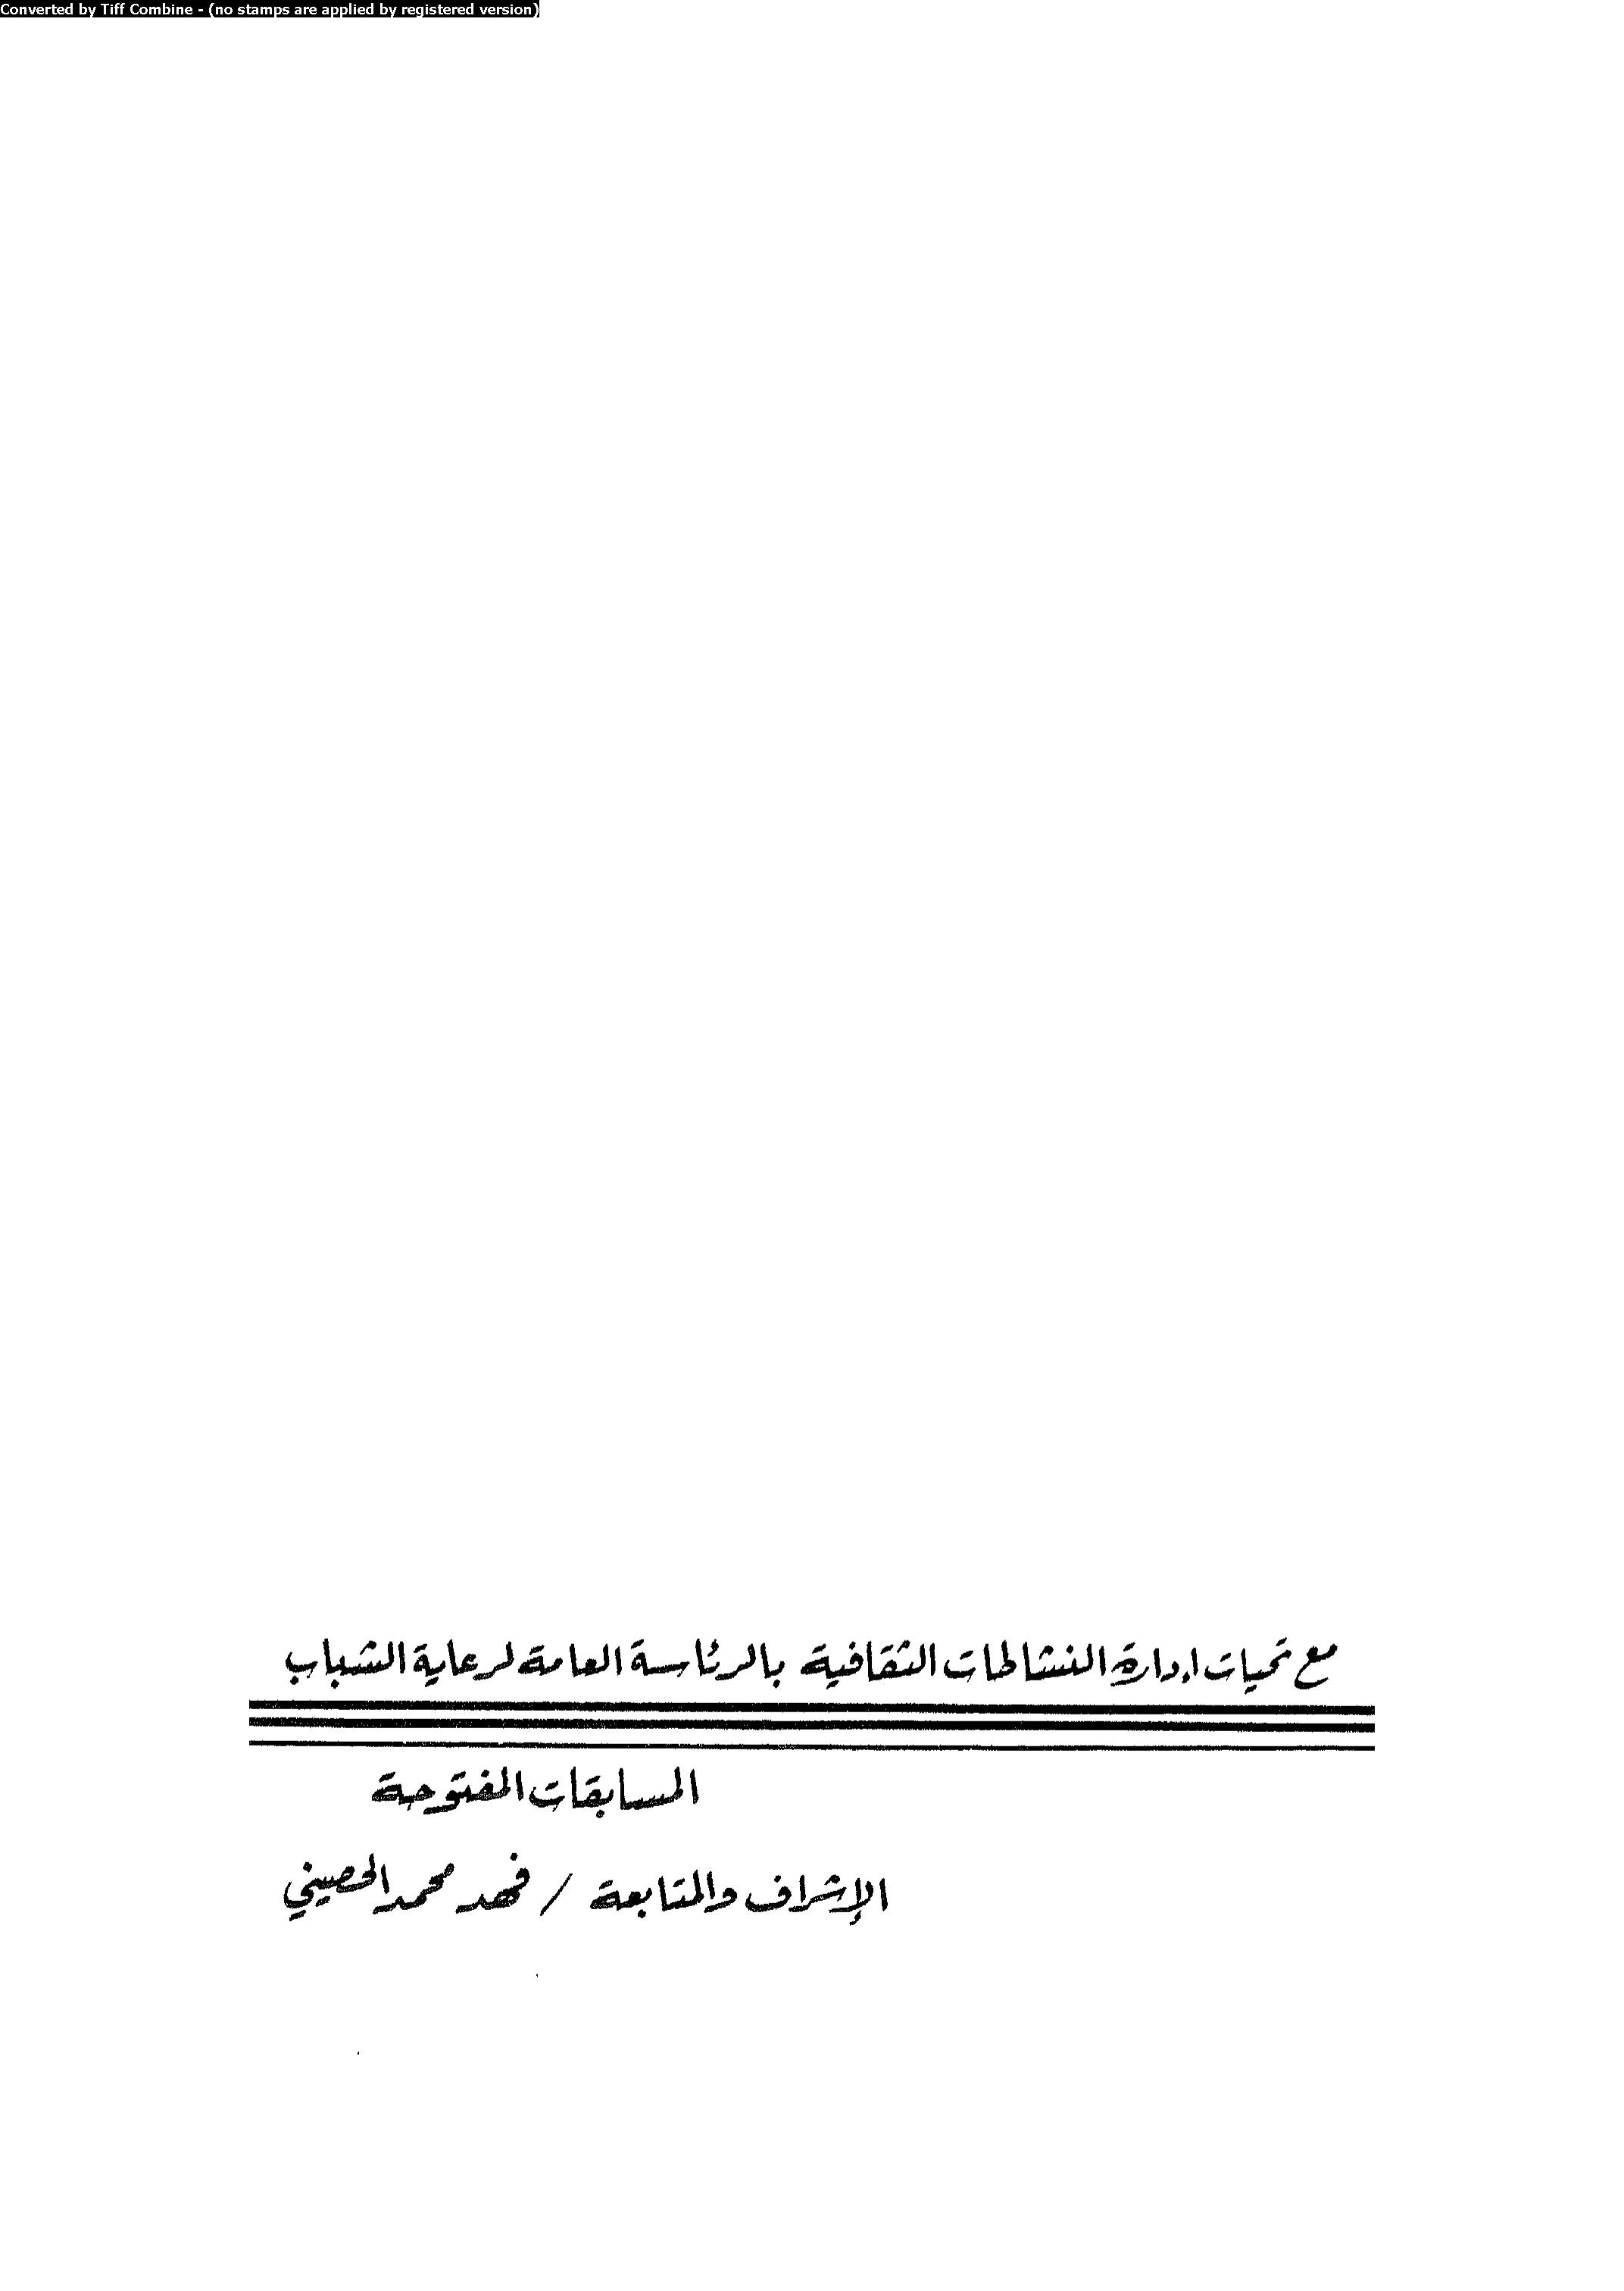 Converted by Tiff Combine - (no stamps are applied by registered version)
مع تحيات إدارة النشاطات الثقافية بالرئاسة العامة لرعاية الشباب
المسابقات المفتوحة
الإشراف والمتابعة / فهد محمد الحصيني